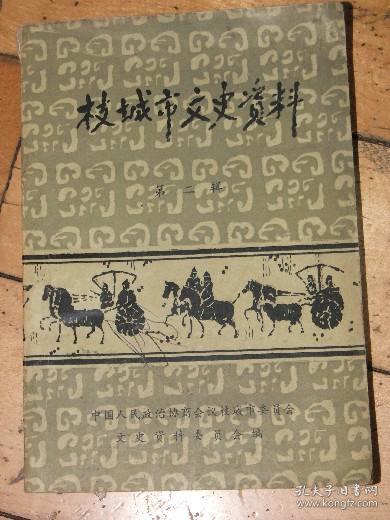 枝城市文史资料
第二辑
中国人民政治协商会议枝城市委员会
文史资料委员会编
孔夫子旧书网
www.kongfz.com